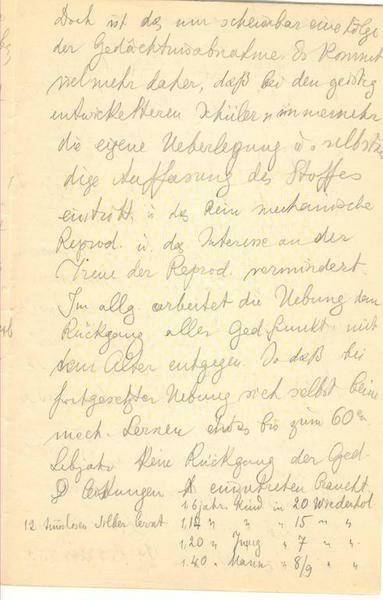 Doch ist das nur scheinbar eine Folge
der Gedächtnisabnahme. Es kommt
vielmehr daher, daß bei den geistig
entwickelteren Schülern immermehr
die eigene Ueberlegung u. selbstän
dige Auffassung des Stoffes
eintritt u. das rein mechanische
Reprod. u. das Interesse an der
Treue der Reprod. vermindert.
Im allg. arbeitet die Uebung dem
Rückgang aller Ged.funkt. mit
dem Alter entgegen. So daß bei
fortgesetzter Uebung sich selbst beim
mech. Lernen etwas bis zum 60en
Lebjahr kein Rückgang der Ged.
einzutreten braucht.
1. 6 jähr. Kind in 20 Wiederhol
12 sinnlosen Silben lernt 1. 14 " " " 15 " "
1. 20 " " 7 " "
1. 40 " Mann " 8/9 " "